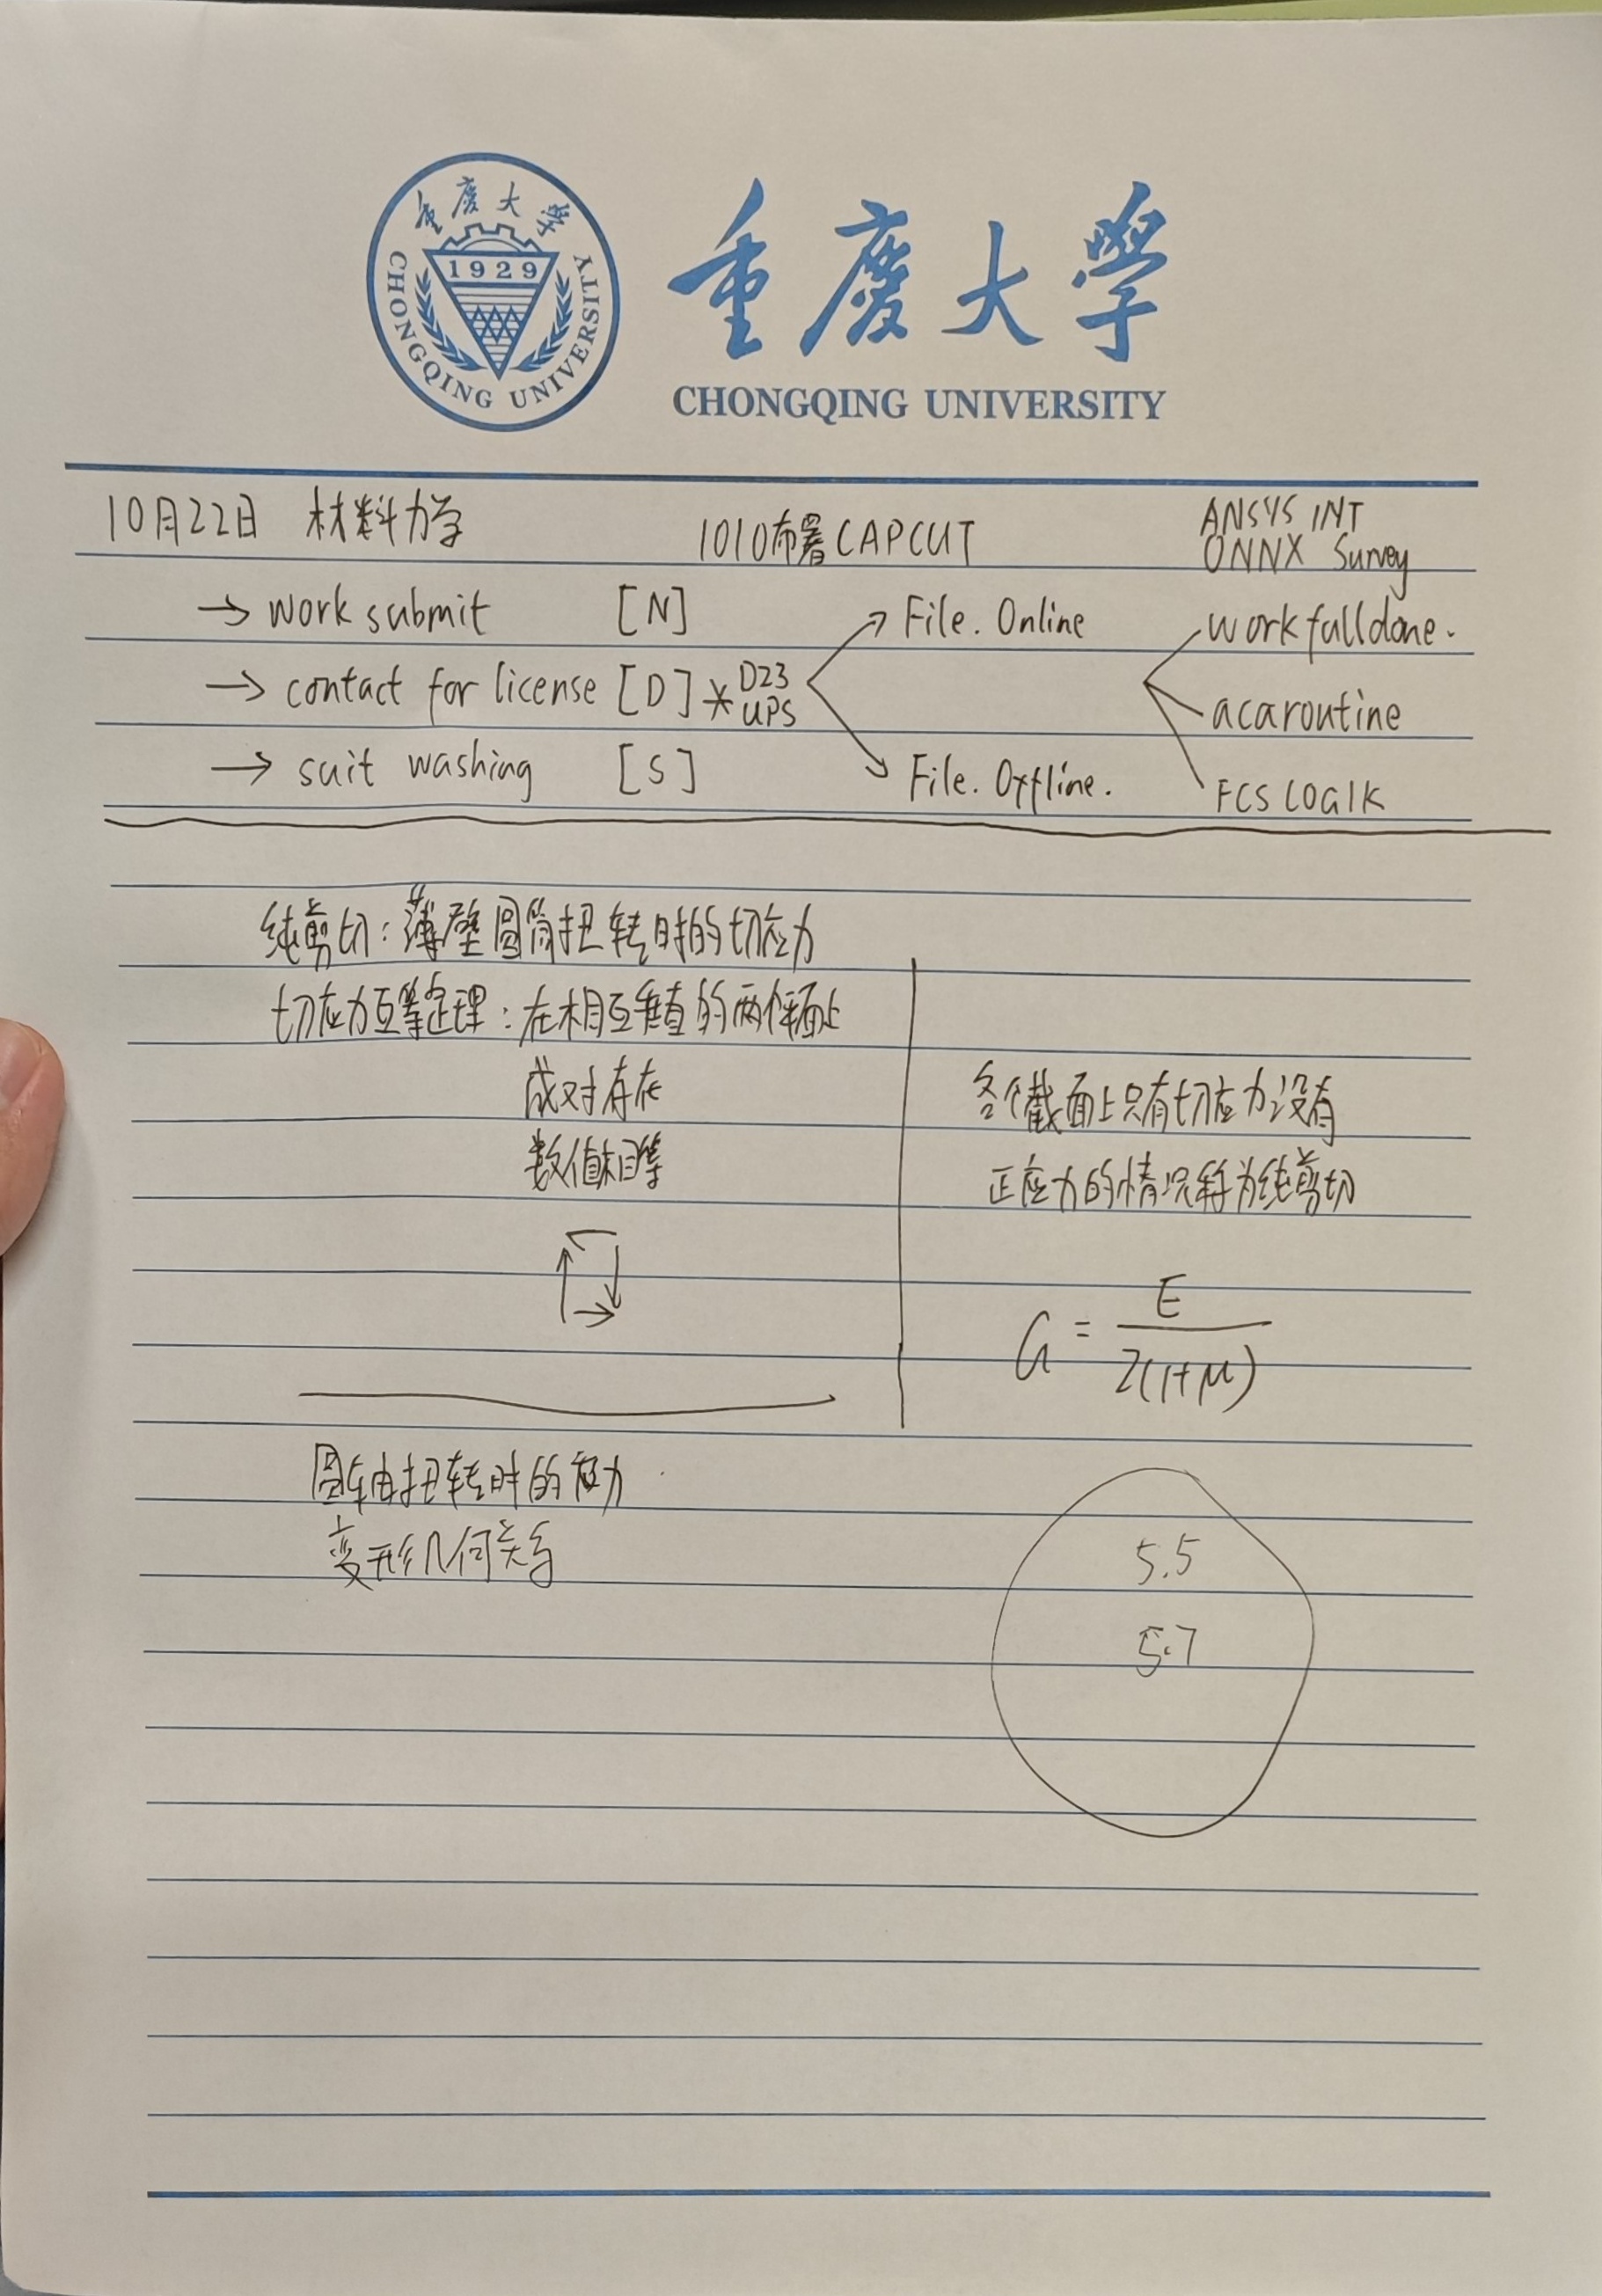 重庆大学
1929
CHONGQING UNIVERSITY
重慶大學
CHONGQING UNIVERSITY
10月22日 材料力学
1010布署CAPCUT
ANSYS INT
ONNX Survey
→ work submit [N]
→ contact for license [D] * D23
UPS
→ suit washing [S]
File. Online
File. Offline.
work fall done.
acaroutine
FCS LOGIK
纯剪切：薄壁圆筒扭转时的切应力
切应力互等定理：在相互垂直的两个平面上
成对存在
数值相等
各个截面上只有切应力没有
正应力的情况称为纯剪切
G = E / 2(1+μ)
圆轴扭转时的应力
变形几何关系
5.5
5.7